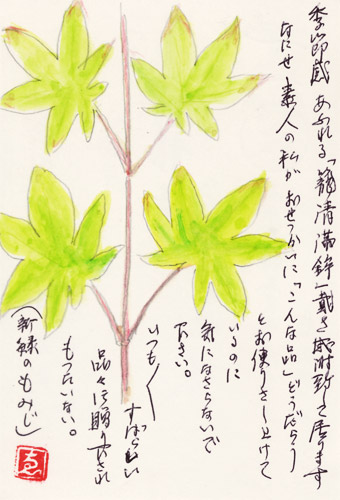 季節感 あふれる「籠清満鉾」戴き感謝致して居ります
なにせ素人の私が おせっかいに「こんな品」どうだろう
とお便りさし上げて
いるのに
気になさらないで
下さい。
いつも〱 すばらしい
品々を贈り下され
もったいない。
(新緑のもみじ)
ゑ